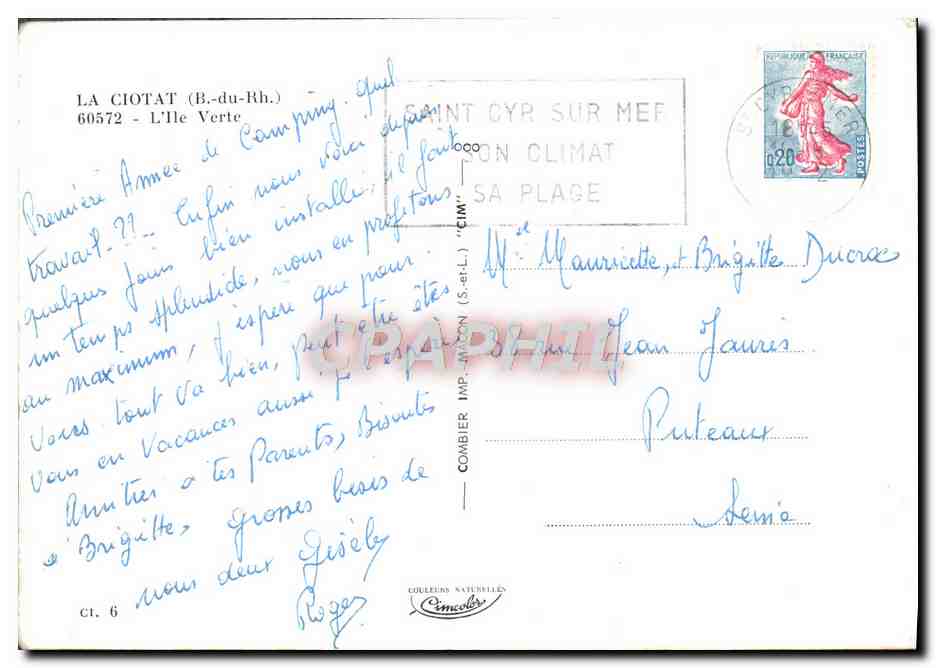 LA CIOTAT (B.-du-Rh.)
60572 - L'Ile Verte
Première Année de Camping. quel
travail.?? Enfin nous voici depuis
quelques jours bien installé, il fait
un temps splendide, nous en profitons
au maximum, j'espère que pour
vous tout va bien, peut être êtes
vous en vacances aussi je l'espère
Amitiés a tes Parents, Bisoutes
a Brigitte, Grosses bises de
nous deux Gisèle
Roger
Ct. 6
COULEURS NATURELLES
Cimcolor
COMBIER IMP. MACON (S.-et-L.) "CIM"
SAINT CYR SUR MER
SON CLIMAT
SA PLAGE
REPUBLIQUE FRANÇAISE
0,20
POSTES
Melle Mauricette, et Brigitte Ducroc
rue Jean Jaures
Puteaux
Seine
CPAPHIL